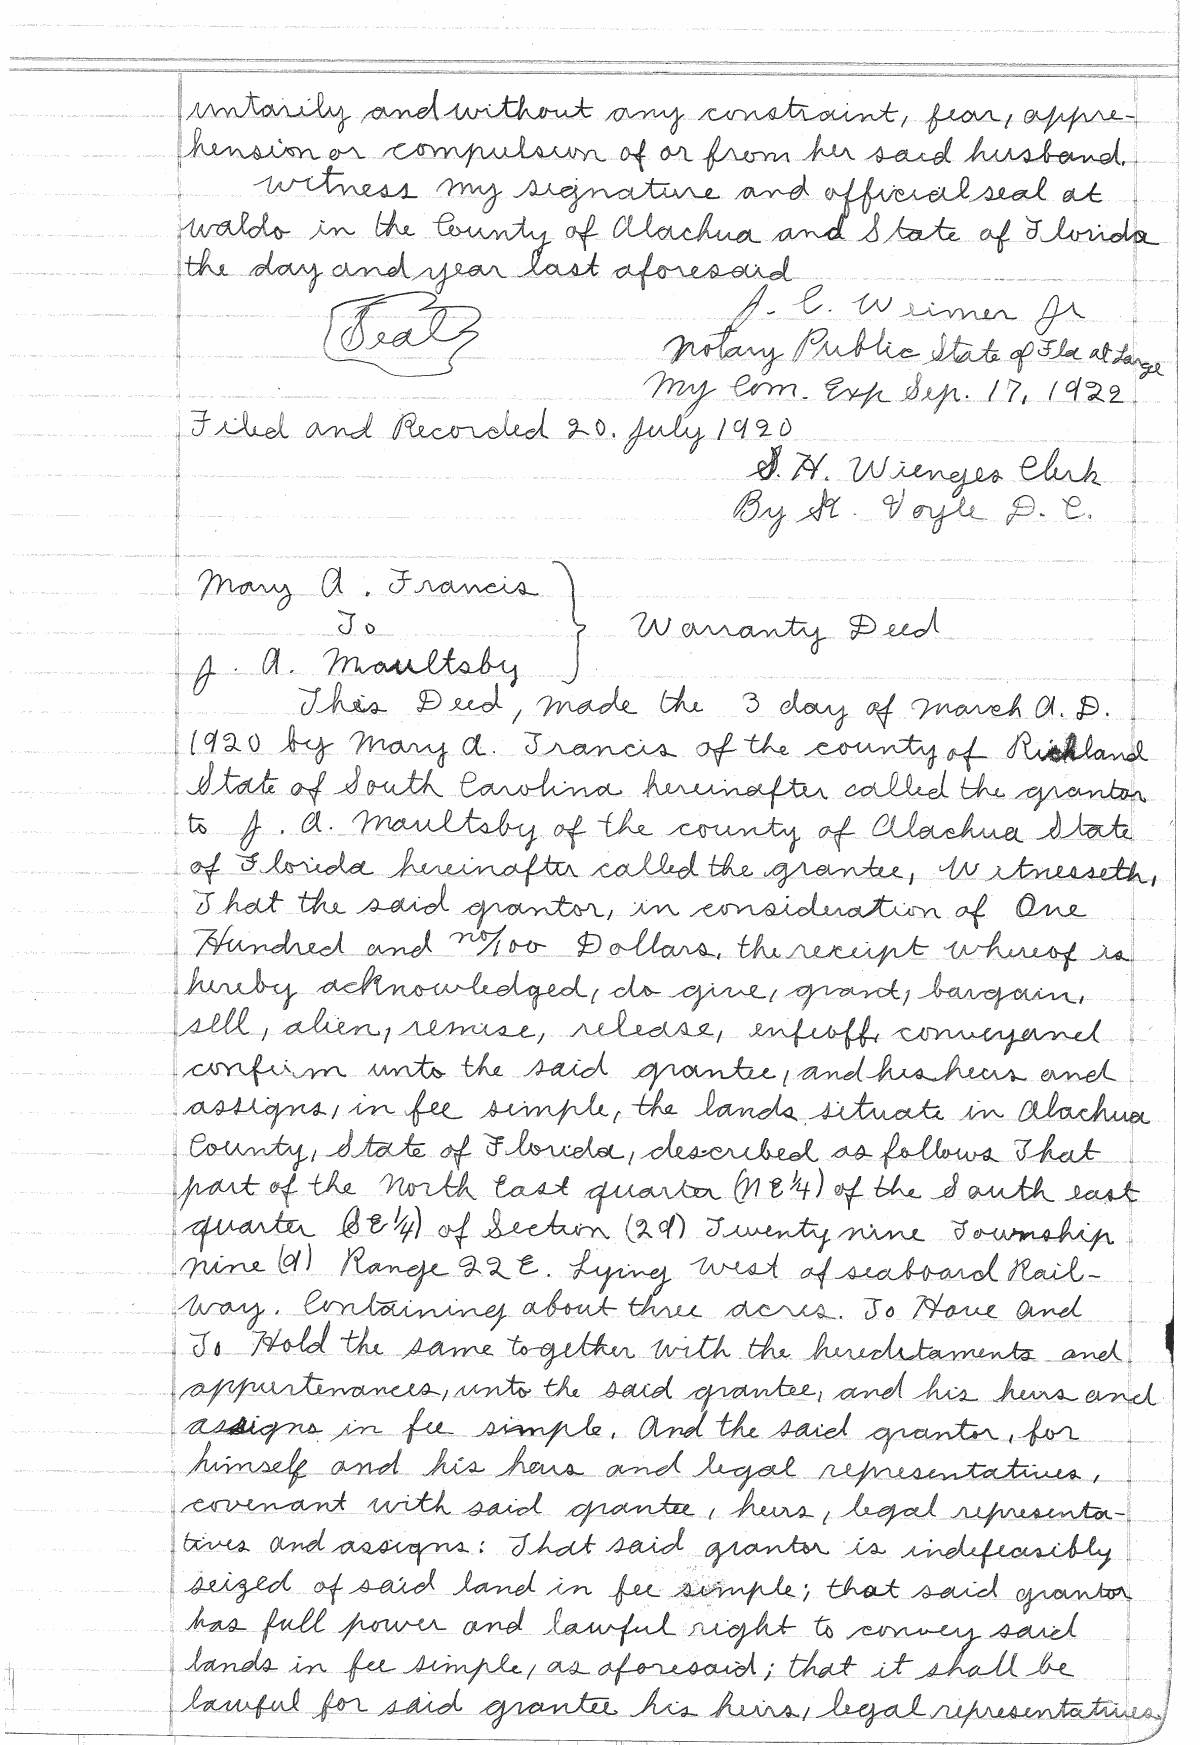 untarily and without any constraint, fear, appre-
hension or compulsion of or from her said husband.
Witness my signature and official seal at
Waldo in the County of Alachua and State of Florida
the day and year last aforesaid
J. C. Weimer Jr
Seal
Notary Public State of Fla at Large
My Com. Exp Sep. 17, 1922
Filed and Recorded 20. July 1920
S. H. Wienges Clerk
By St. Voyle D. C.
Mary A. Francis
To
Warranty Deed
J. A. Maultsby
This Deed, made the 3 day of March A. D.
1920 by Mary A. Francis of the county of Richland
State of South Carolina hereinafter called the grantor
to J. A. Maultsby of the county of Alachua State
of Florida hereinafter called the grantee, Witnesseth,
That the said grantor, in consideration of One
Hundred and no/100 Dollars, the receipt whereof is
hereby acknowledged, do give, grant, bargain,
sell, alien, remise, release, enfeoff, convey and
confirm unto the said grantee, and his heirs and
assigns, in fee simple, the lands situate in Alachua
County, State of Florida, described as follows That
part of the North East quarter (NE 1/4) of the South east
quarter (SE 1/4) of Section (29) Twenty nine Township
nine (9) Range 22 E. Lying West of seaboard Rail-
way. Containing about three acres. To Have and
To Hold the same together with the hereditaments and
appurtenances, unto the said grantee, and his heirs and
assigns in fee simple. And the said grantor, for
himself and his heirs and legal representatives,
covenant with said grantee, heirs, legal representa-
tives and assigns: That said grantor is indefeasibly
seized of said land in fee simple; that said grantor
has full power and lawful right to convey said
lands in fee simple, as aforesaid; that it shall be
lawful for said grantee his heirs, legal representatives